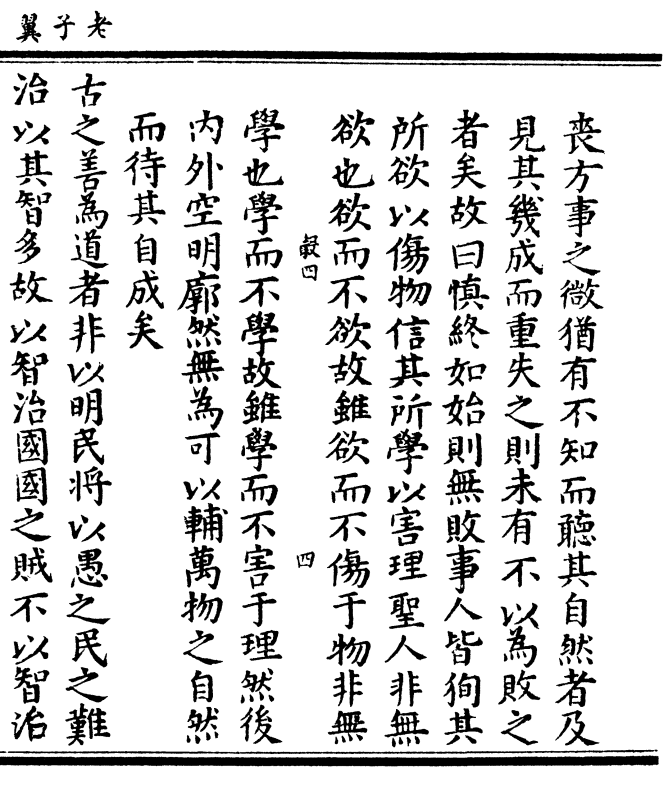 老子翼
喪方事之微猶有不知而聽其自然者及
見其幾成而重失之則未有不以為敗之
者矣故曰慎終如始則無敗事人皆徇其
所欲以傷物信其所學以害理聖人非無
欲也欲而不欲故雖欲而不傷于物非無
四
學也學而不學故雖學而不害于理然後
內外空明廓然無為可以輔萬物之自然
而待其自成矣
古之善為道者非以明民將以愚之民之難
治以其智多故以智治國國之賊不以智治